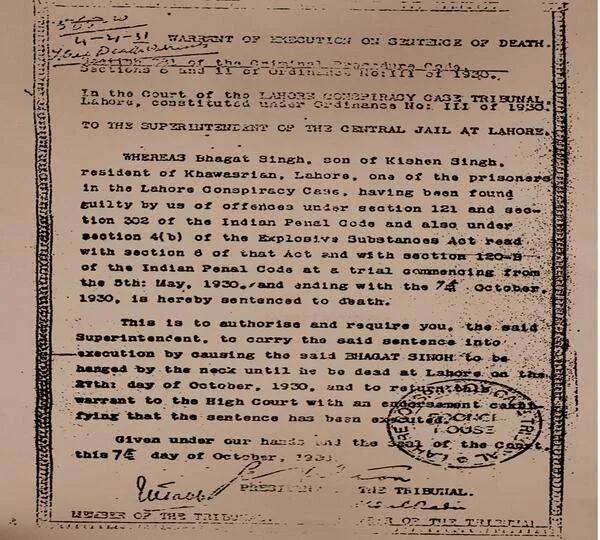 4-4-31
WARRANT OF EXECUTION ON SENTENCE OF DEATH.
Sections 8 and 11 of Ordinance No: III of 1930.
In the Court of the LAHORE CONSPIRACY CASE TRIBUNAL,
Lahore, constituted under Ordinance No: III of 1930.
TO THE SUPERINTENDENT OF THE CENTRAL JAIL AT LAHORE.
WHEREAS Bhagat Singh, son of Kishen Singh,
resident of Khawasrian, Lahore, one of the prisoners
in the Lahore Conspiracy Case, having been found
guilty by us of offences under section 121 and sec-
tion 302 of the Indian Penal Code and also under
section 4(b) of the Explosive Substances Act read
with section 6 of that Act and with section 120-B
of the Indian Penal Code at a trial commencing from
the 5th: May, 1930, and ending with the 7th October,
1930, is hereby sentenced to death.
This is to authorise and require you, the said
Superintendent, to carry the said sentence into
execution by causing the said BHAGAT SINGH to be
hanged by the neck until he be dead at Lahore on the
27th: day of October, 1930, and to return this
warrant to the High Court with an endorsement certi-
fying that the sentence has been executed.
Given under our hands and the seal of the Court,
this 7th day of October, 1930.
PRESIDENT THE TRIBUNAL.
MEMBER OF THE TRIBUNAL OF THE TRIBUNAL